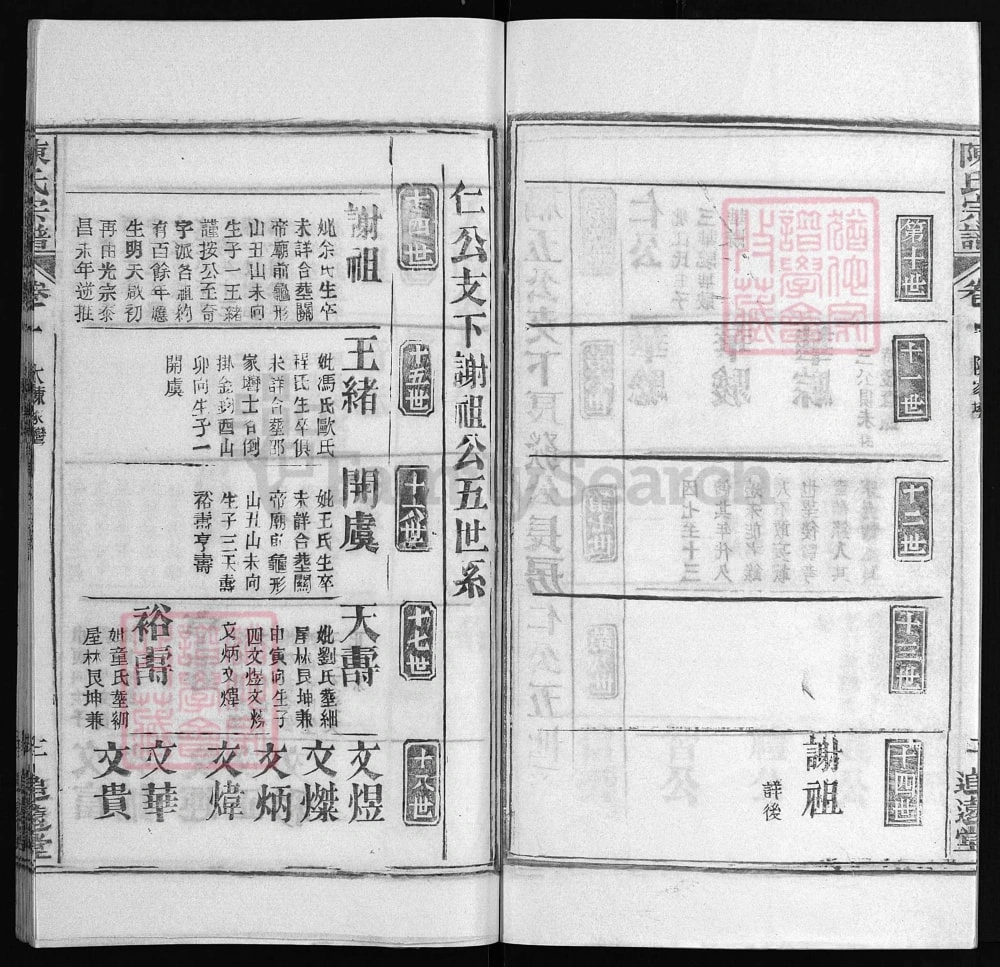 陳氏宗譜
卷一
追遠堂
第十世
十一世
十二世
十三世
十四世
謝祖
詳後
仁公支下謝祖公五世系
十四世
謝祖
妣余氏生卒
未詳合塟關
帝廟前龜形
山丑山未向
生子一王緒
謹按公至奇
字派各祖約
有百餘年應
生明天啟初
再由光宗泰
昌未年逆推
十五世
王緒
妣馮氏歐氏
程氏生卒俱
未詳合塟邵
家壪土名倒
掛金鈎酉山
卯向生子一
開虞
十六世
開虞
妣王氏生卒
未詳合塟關
帝廟前龜形
山丑山未向
生子三天壽
裕壽亨壽
十七世
天壽
妣劉氏塟細
屋林艮坤兼
申寅向生子
四文煜文㷇
文炳文煒
裕壽
妣童氏塟細
屋林艮坤兼
十八世
文煜
文㷇
文炳
文煒
文華
文貴
陳氏宗譜
卷一
追遠堂
FamilySearch